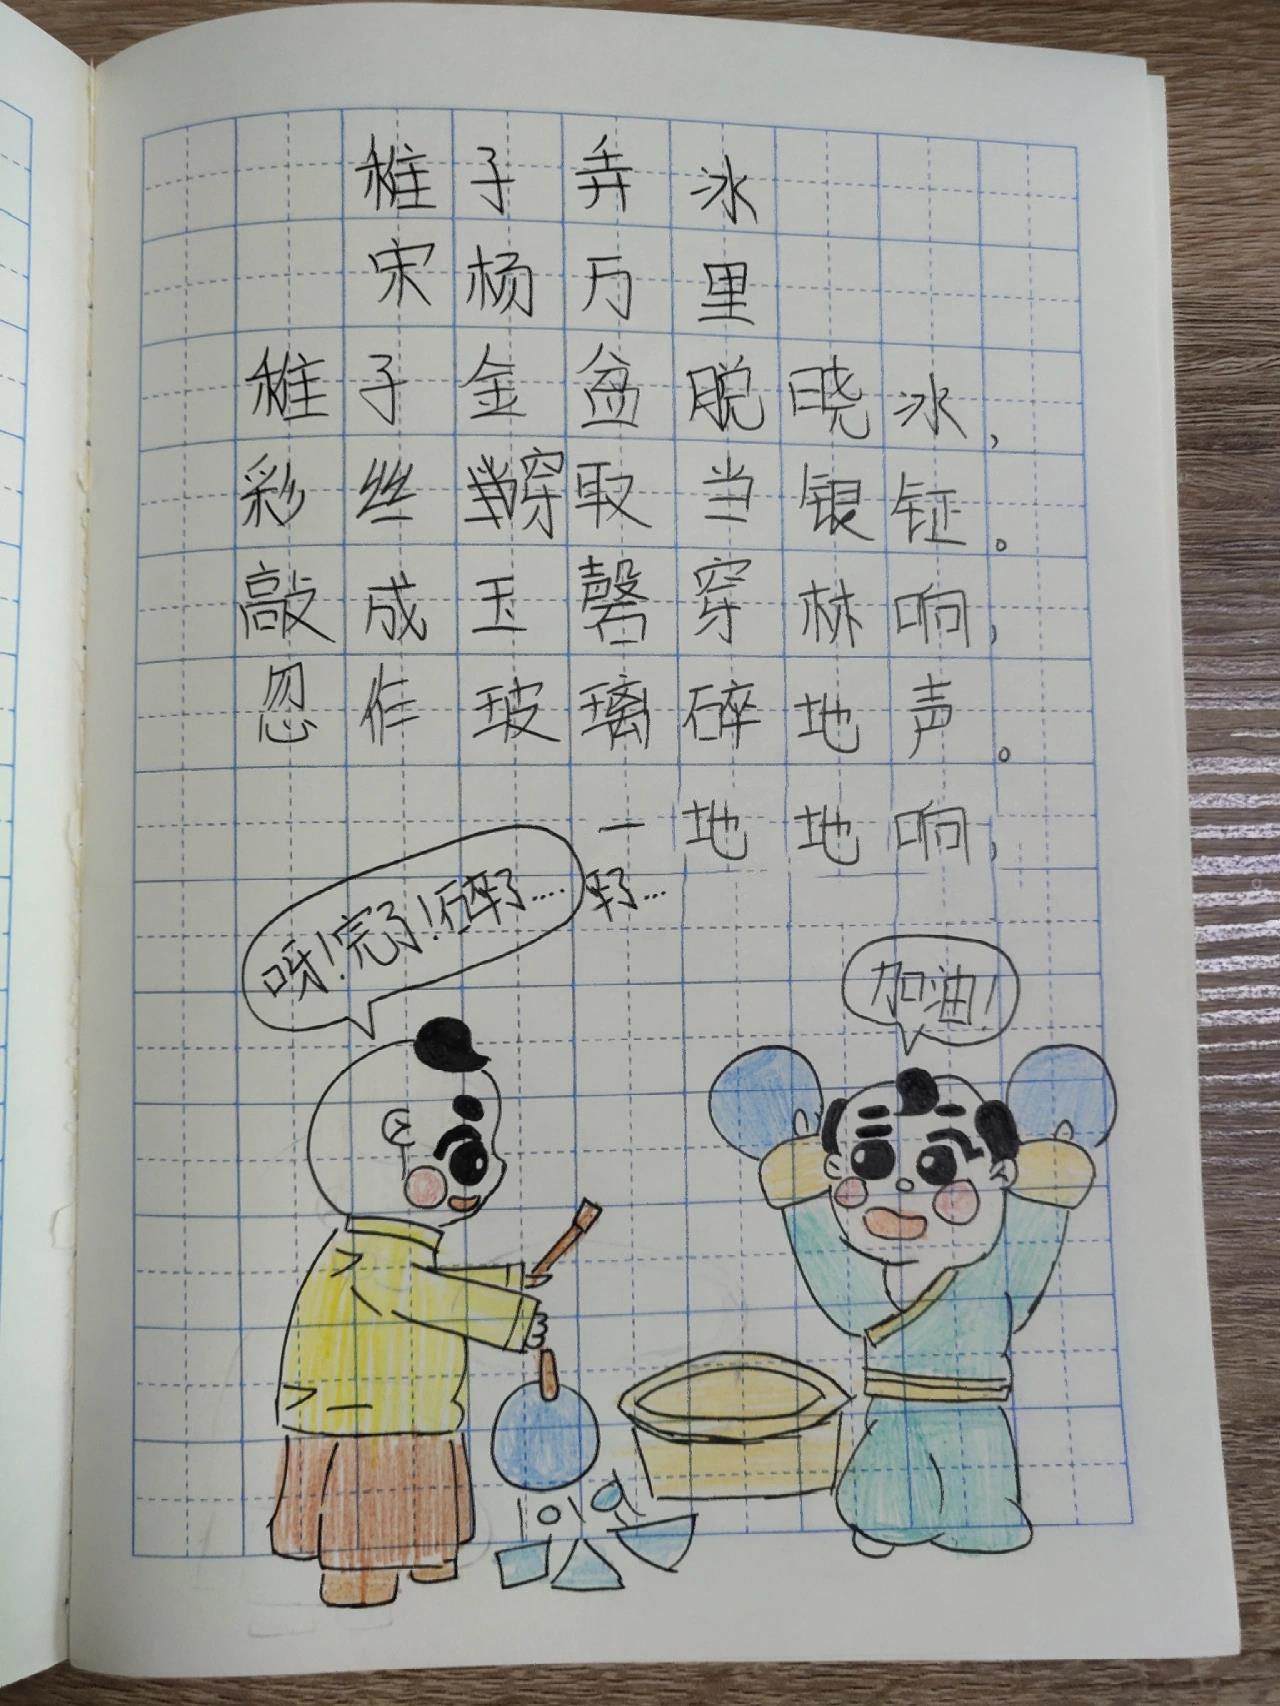 稚子弄冰
宋杨万里
稚子金盆脱晓冰，
彩丝穿取当银钲。
敲成玉磬穿林响，
忽作玻璃碎地声。
一地地响，
呀！完了！碎了……
了…
加油！